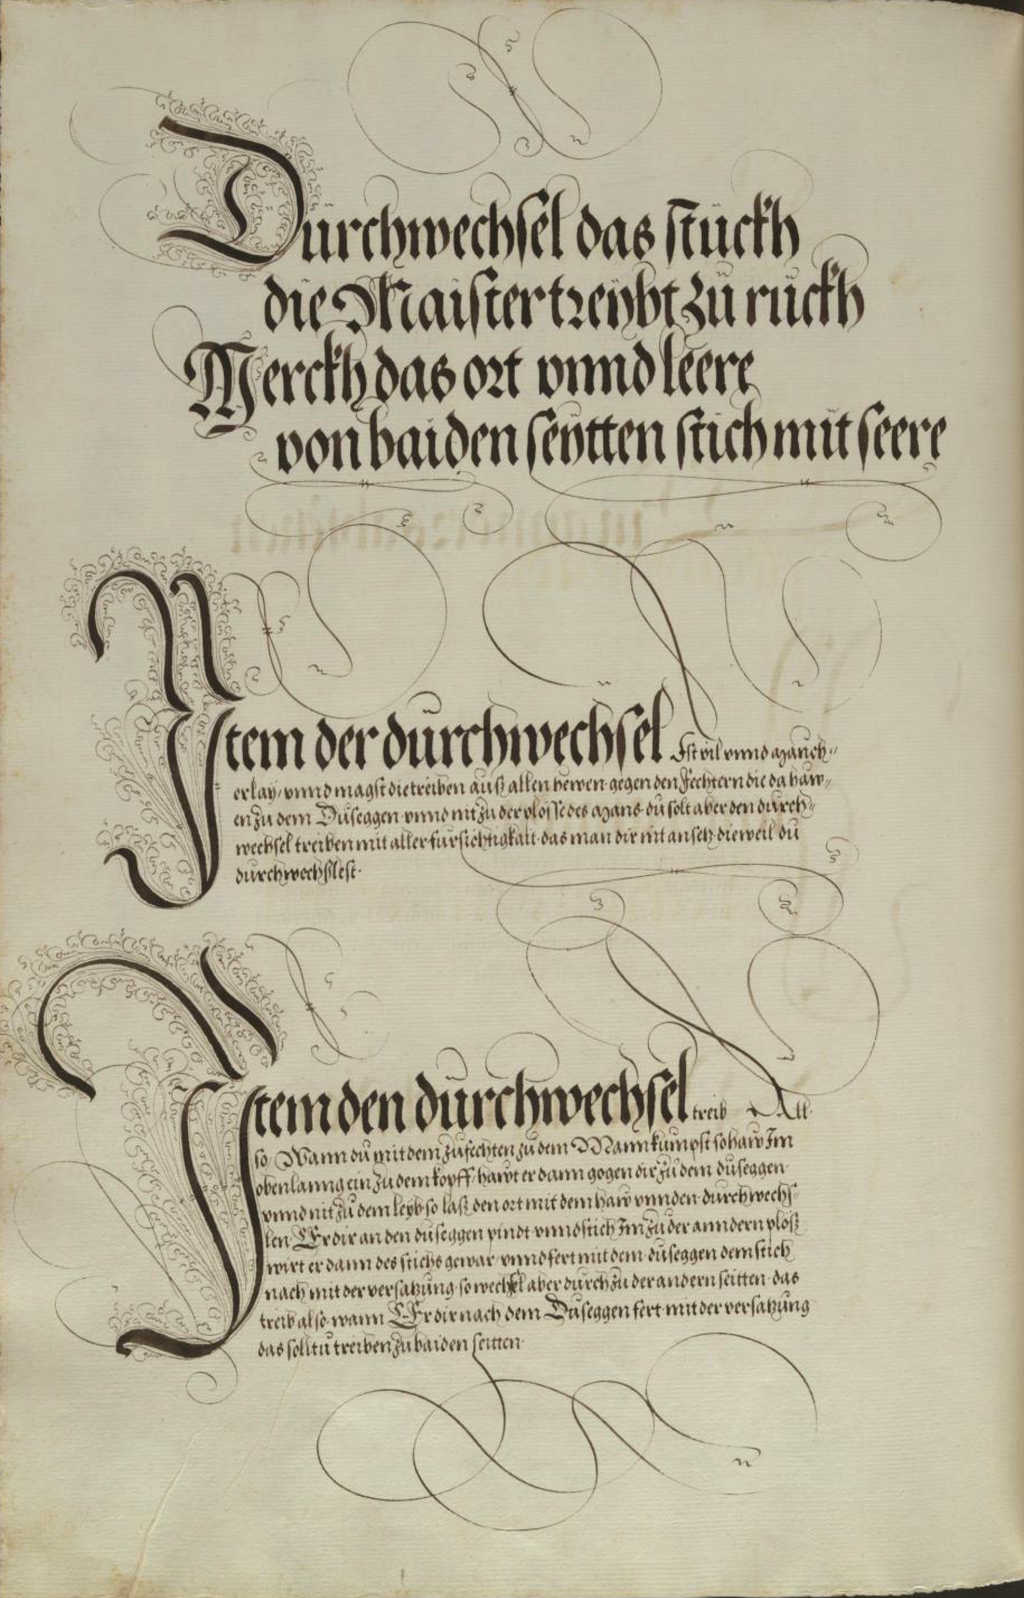 Dürchwechsel das stückh
die Maister treybt zü rückh
Merckh das ort vnnd leere
von baiden seytten stich mit seere
Item der dürchwechsel Ist vil vnnd manch-
erlay vnnd magst die treiben auß allen hewen gegen den Fechtern die da haw-
en zu dem Duseggen vnnd nit zu der plosse des mans du solt aber den durch-
wechsel treiben mit aller fursichtigkait das man dir nit an setz dieweil du
durchwechslest
Item den dürchwechsel treib All
so Wann du mit dem zufechten zu dem Mann kumpst so haw Im
oben lanng ein zu dem kopff hawt er dann gogen dir zu dem duseggen
vnnd nit zu dem leyb so laß den ort mit dem haw vnnden durchwechs-
len Er dir an den duseggen pindt vnnd stich Im zu der anndern ploß
wirt er dann des stichs gewar vnnd fert mit dem duseggen dem stich
nach mit der versatzung so wechsel aber durch zu der andern seitten das
treib also wann Er dir nach dem Duseggen fert mit der versatzung
das solltu treiben zu baiden seitten